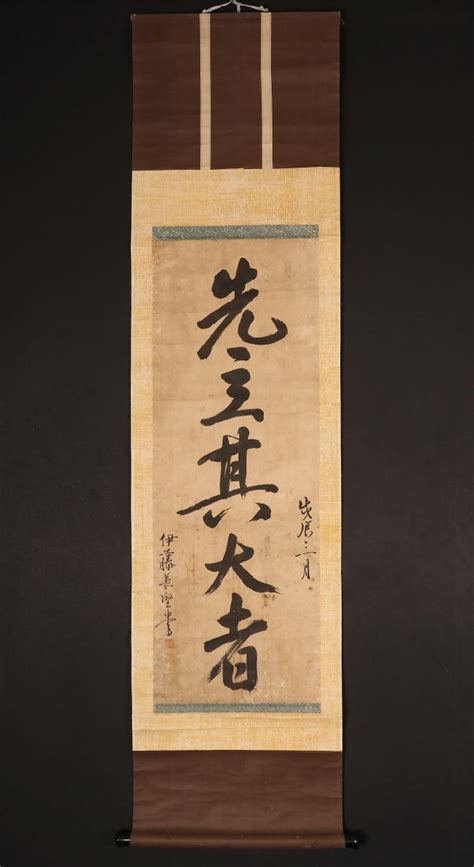 戊辰三月
先立其大者
伊藤長堅書